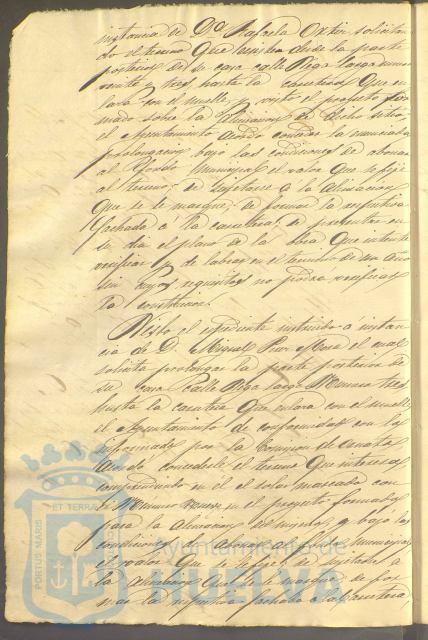 instancia de Dª Rafaela Ortiz solicitan
do el terreno que resulta desde la parte
posterior de su casa calle Rigo largo numero
veinte y tres hasta la carretera que en
laza con el muelle, y visto el proyecto for
mado sobre la alineacion de dicho sitio,
el Ayuntamiento acordó conceder la enunciada
prolongacion bajo las condiciones de abonar
al fondo municipal el valor que se fije
al terreno; de sujetarse á la alineacion
que se le marque; de formar la respectiva
fachada á la carretera; de presentar en
su dia el plano de la obra que intente
verificar y de labrar en el termino de un año
sin cuyos requisitos no podrá verificar
la construccion.
Visto el espediente instruido á instan
cia de D. Miguel el cual
solicita prolongar la parte posterior de
su casa calle Rigo largo numero tres
hasta la carretera que enlaza con el muelle
el Ayuntamiento de conformidad con lo
informado por la Comision de ornato
acordó concederle el terreno que interesa
comprendido en él el solar marcado con
el numero nueve en el proyecto formado
para la alineacion del mismo, y bajo las
condiciones de abonar al fondo municipal
el valor que se fije; de sujetarse á
la alineacion que se le marque; de for
mar la respectiva fachada á la carretera,
PORTUS MARIS ET TERRAE
Ayuntamiento de
HUELVA